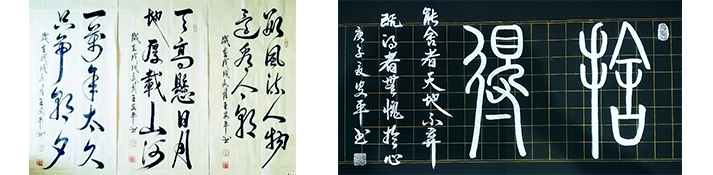 數風流人物
還看今朝
天高懸日月
地厚載山河
一萬年太久
只爭朝夕
捨得
能舍者天地不弃
既得者無愧於心
庚子夏安平书